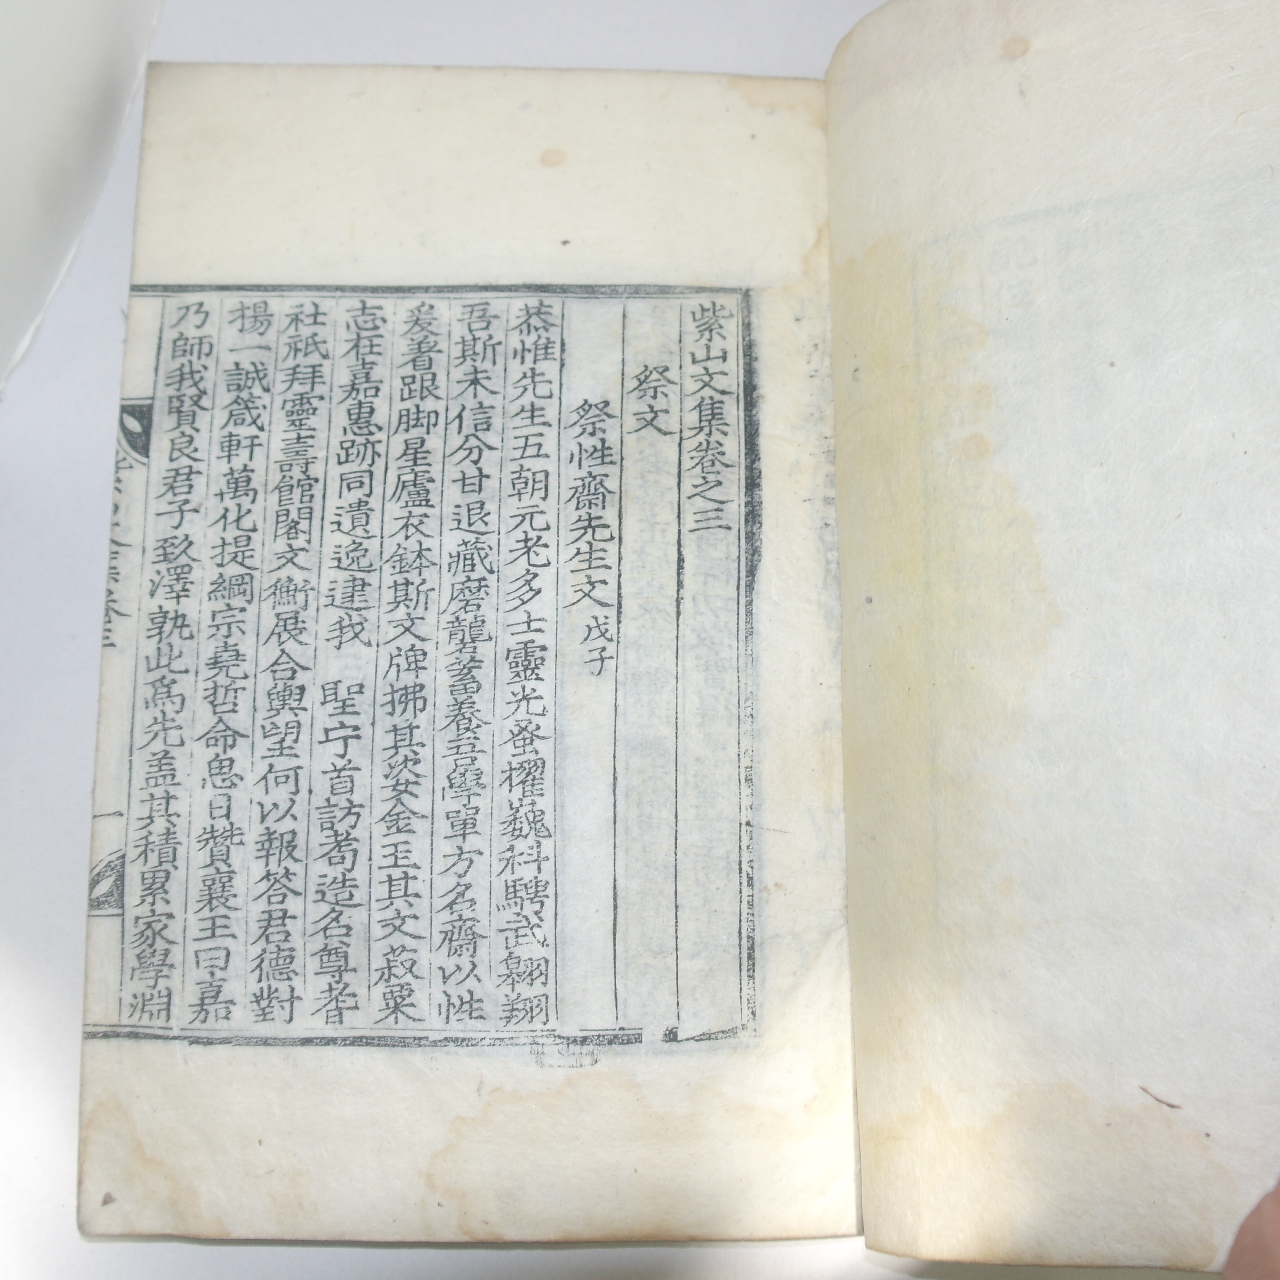 紫山文集卷之三
祭文
祭性齋先生文 戊子
恭惟先生五朝元老多士靈光蚤擢巍科騁武翱翔
吾斯未信分甘退藏磨礱蓄養吾學單方名齋以性
爰着跟脚星廬衣鉢斯文牌拂其姿金玉其文菽粟
志在嘉惠跡同遺逸逮我 聖宁首訪耉造名尊耆
社祇拜靈壽館閣文衡展合輿望何以報答君德對
揚一誠箴軒萬化提綱宗堯哲命思日贊襄王曰嘉
乃師我賢良君子致澤孰此爲先盖其積累家學淵
紫山文集卷三
一